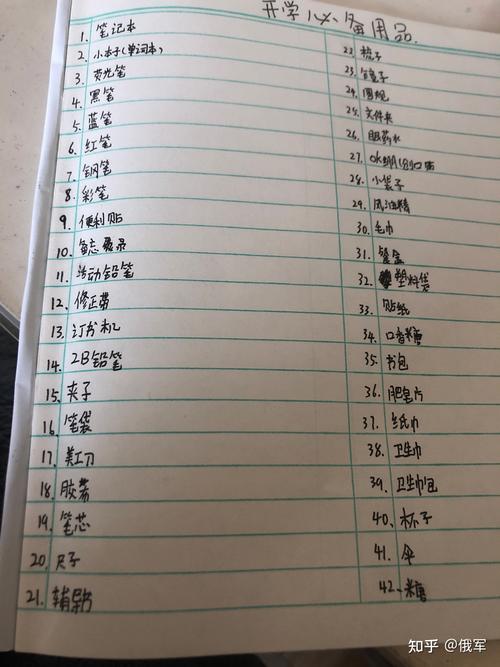 开学必备用品
1. 笔记本
2. 小本子(单词本)
3. 荧光笔
4. 黑笔
5. 蓝笔
6. 红笔
7. 钢笔
8. 彩笔
9. 便利贴
10. 备忘录
11. 活动铅笔
12. 修正带
13. 订书机
14. 2B铅笔
15. 夹子
16. 笔袋
17. 美工刀
18. 胶带
19. 笔芯
20. 尺子
21. 辅导书
22. 梳子
23. 镜子
24. 圆规
25. 文件夹
26. 眼药水
27. OK绷
28. 小袋子
29. 风油精
30. 毛巾
31. 餐盒
32. 塑料袋
33. 贴纸
34. 口香糖
35. 书包
36. 肥皂片
37. 纸巾
38. 卫生巾
39. 卫生巾包
40. 杯子
41. 伞
42. 糖
知乎 @俄军